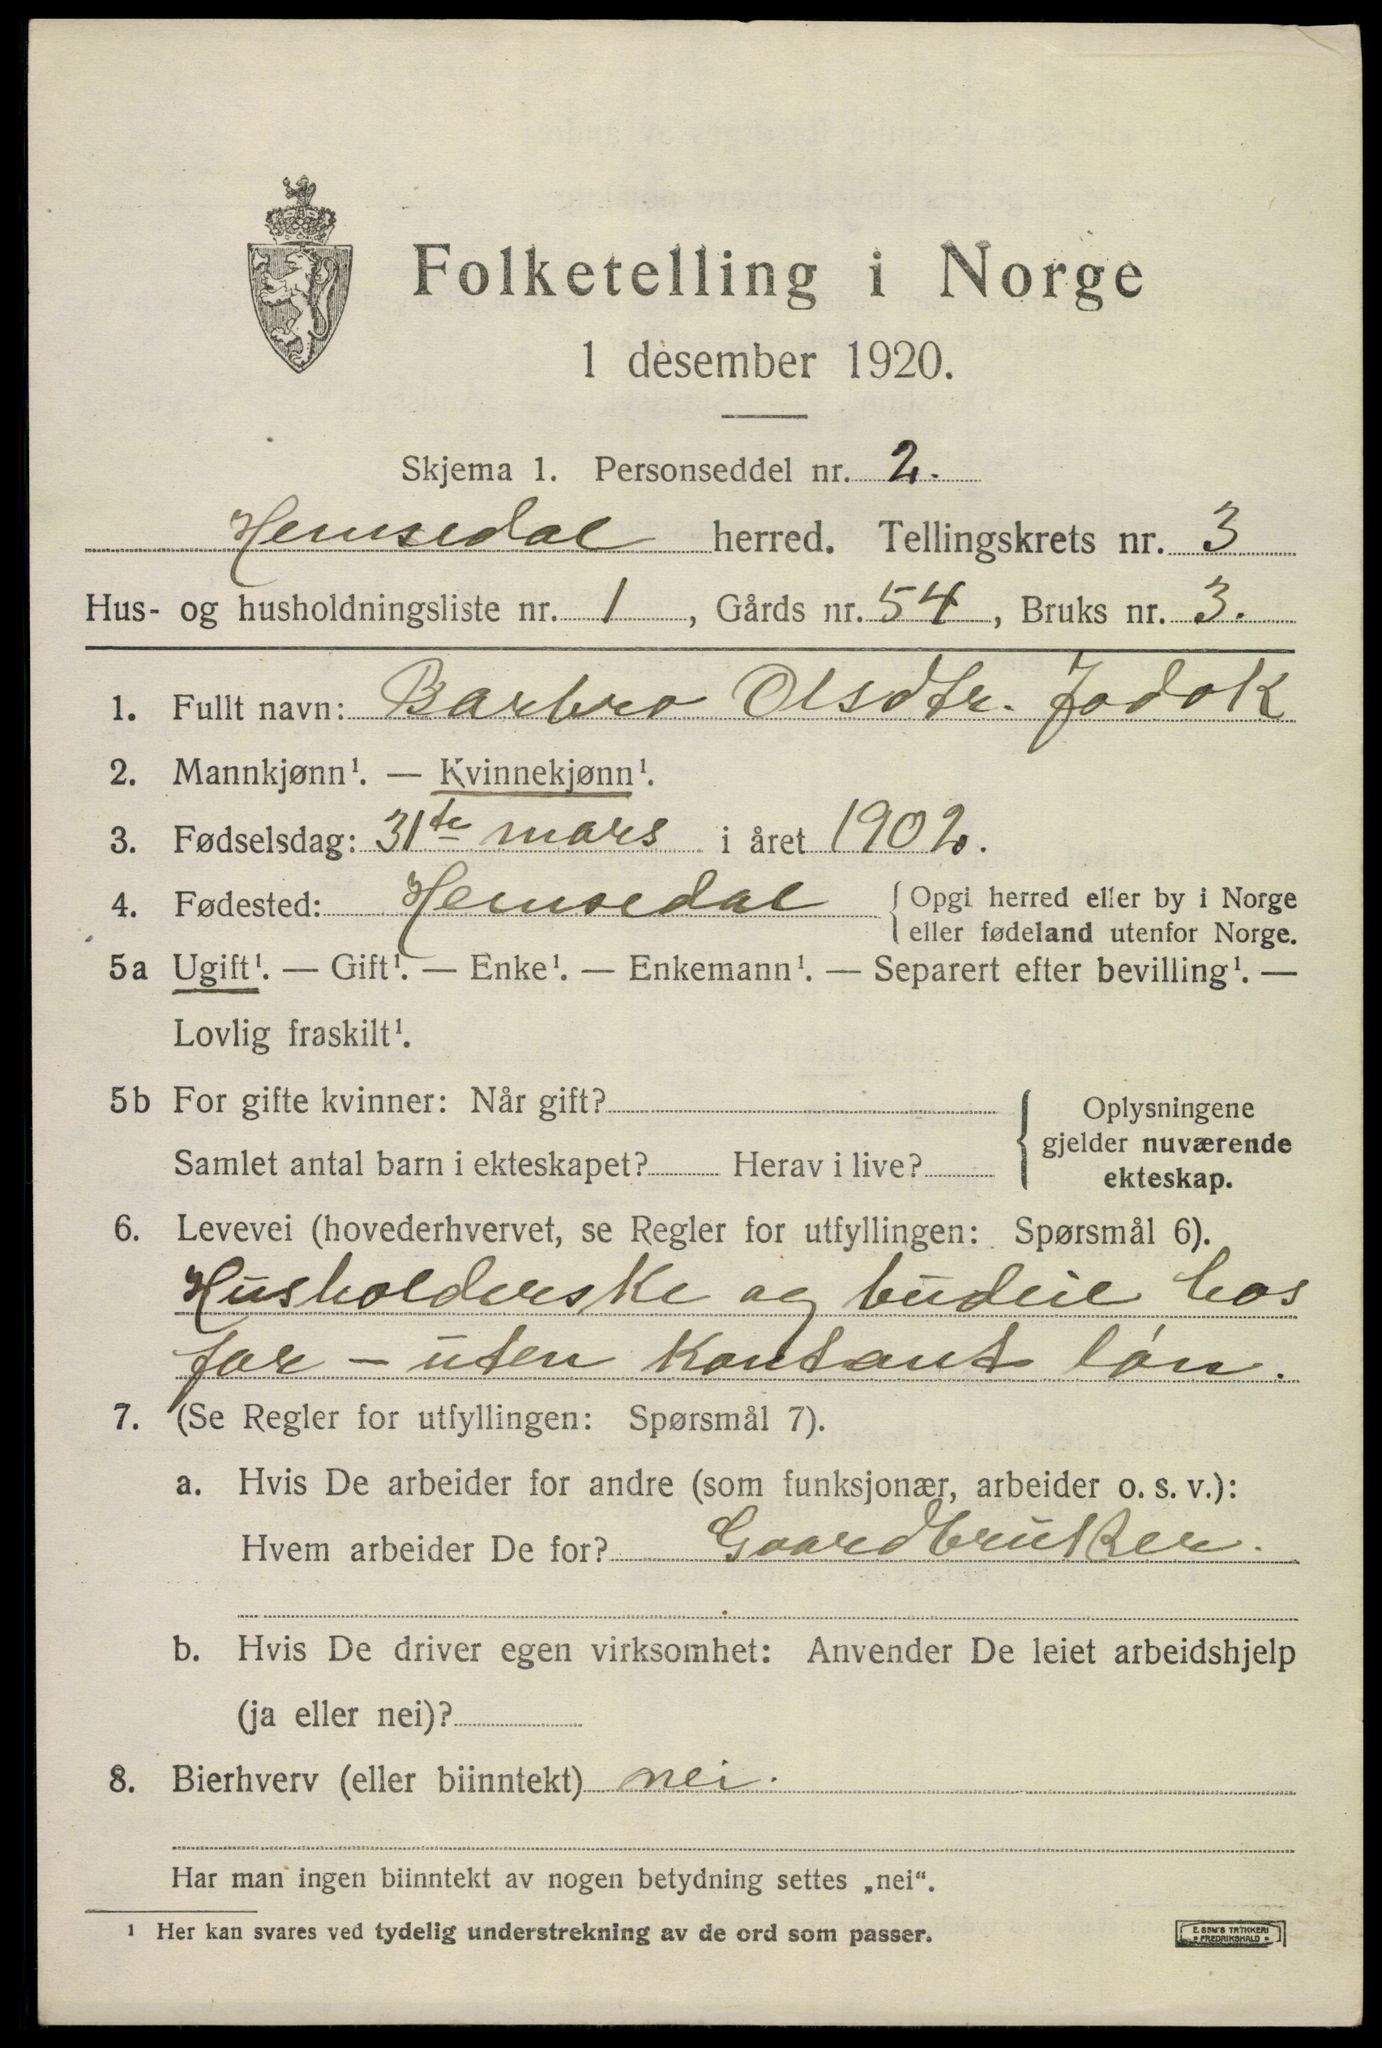 Folketelling i Norge
1 desember 1920.
Skjema 1. Personseddel nr. 2.
Hemsedal herred. Tellingskrets nr. 3
Hus- og husholdningsliste nr. 1, Gårds nr. 54, Bruks nr. 3.
1. Fullt navn: Barbro Olsdtr. Jodok
2. Mannkjønn¹. — Kvinnekjønn¹.
3. Fødselsdag: 31te mars i året 1902.
4. Fødested: Hemsedal { Opgi herred eller by i Norge
eller fødeland utenfor Norge.
5a Ugift¹. — Gift¹. — Enke¹. — Enkemann¹. — Separert efter bevilling¹. —
Lovlig fraskilt¹.
5b For gifte kvinner: Når gift?
Samlet antal barn i ekteskapet? Herav i live?
{ Oplysningene
gjelder nuværende
ekteskap.
6. Levevei (hovederhvervet, se Regler for utfyllingen: Spørsmål 6).
Husholderske og budeie hos
far - uten kontant løn.
7. (Se Regler for utfyllingen: Spørsmål 7).
a. Hvis De arbeider for andre (som funksjonær, arbeider o. s. v.):
Hvem arbeider De for? Gaardbruker.
b. Hvis De driver egen virksomhet: Anvender De leiet arbeidshjelp
(ja eller nei)?
8. Bierhverv (eller biinntekt) nei.
Har man ingen biinntekt av nogen betydning settes „nei“.
¹ Her kan svares ved tydelig understrekning av de ord som passer.
E. SEM'S TRYKKERI
FREDRIKSHALD